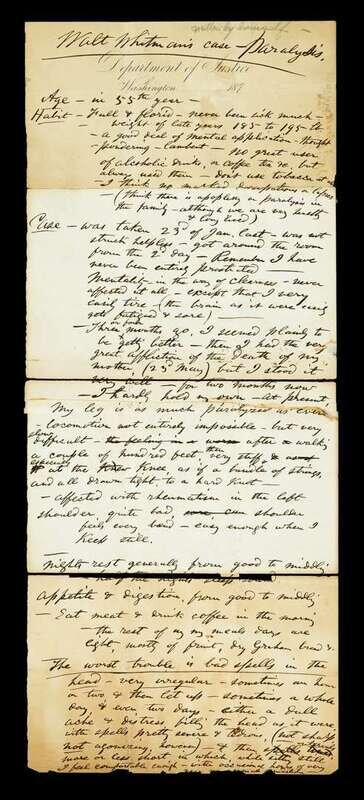 written by himself.
Walt Whitman's case - Paralysis,
Department of Justice
Washington 187
Age - in 55th year -
Habit - Full & florid - never been sick much -
weight of late years 185 to 195 lb
- a good deal of mental application - thought
- pondering - no great user
of alcoholic drinks, or coffee tea &c, but
always used them - don't use tobacco at
- I think no marked
- (I think there is apoplexy or paralysis in
the family - although we are very
& long lived)
Case - was taken 23d of Jan. last - was not
struck helpless - got around the room
from the 2d day - Remember I have
never been entirely prostrated -
Mentality - in the way of clearness - never
affected it all - except that I very
easily tire - (the brain as it were easily
gets fatigued & sore)
or four
- Three months ago, I seemed plainly to
be getting better - then I had the very
great affliction of the death of my
mother, (23d May) but I stood it
very well - for two months now
- I hardly hold my own - at present
My leg is as much paralyzed as ever
- locomotion not entirely impossible - but very
difficult - the feeling is worse after a walk
a couple of hundred feet, then very stiff, &
especially
at the Knee, as if a bundle of strings,
and all drawn tight to a hard Knot -
- affected with rheumatism in the left
shoulder quite bad, shoulder
feels very bad - easy enough when I
Keep still.
- nights rest generally from good to middling
appetite & digestion, from good to middling
- Eat meat & drink coffee in the morning
- the rest of my meals days are
light, mostly of fruit, dry Graham bread &
The worst trouble is bad spells in the
head - very irregular - sometimes an hour
or two, & then let up - sometimes a whole
day, & even two days - either a dull
ache & distress filling the head as it were
with spells pretty severe & (not sharp
nor agonizing, however) - & then
more or less short in which while sitting still
I feel comfortable enough - with occasional